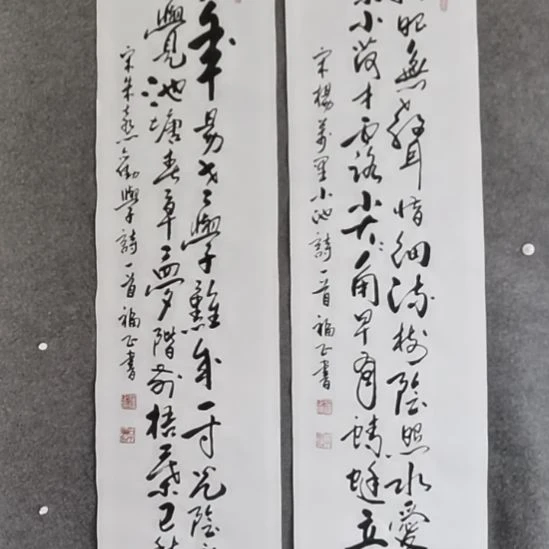 眼無聲惜細流樹陰照水愛
小荷才露尖尖角早有蜻蜓立
宋楊萬里小池詩一首福正書
年易老學難成一寸光陰
覺池塘春草夢階前梧葉已秋
宋朱熹勸學詩一首福正書